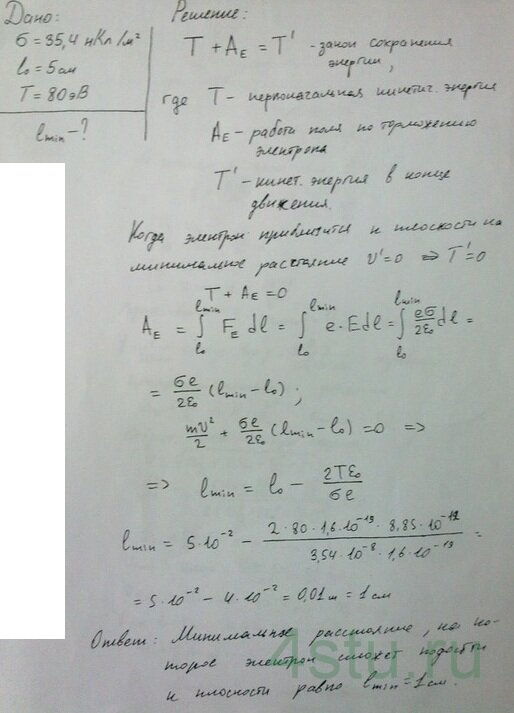 Дано:
σ = 35,4 нКл/м²
l₀ = 5 см
T = 80 эВ
lmin - ?
Решение:
T + A_E = T' - закон сохранения
энергии,
где T - первоначальная кинетич. энергия
A_E - работа поля по торможению
электрона
T' - кинет. энергия в конце
движения.
Когда электрон приблизится к плоскости на
минимальное расстояние υ'=0 ⇒ T'=0
T + A_E = 0
A_E = ∫_{l₀}^{lmin} F_E dl = ∫_{l₀}^{lmin} e·E dl = ∫_{l₀}^{lmin} eσ/2ε₀ dl =
= σe/2ε₀ (lmin - l₀) ;
mυ²/2 + σe/2ε₀ (lmin - l₀) = 0 =>
=> lmin = l₀ - 2Tε₀/σe
lmin = 5·10⁻² - 2·80·1,6·10⁻¹⁹·8,85·10⁻¹²/3,54·10⁻⁸·1,6·10⁻¹⁹ =
= 5·10⁻² - 4·10⁻² = 0,01 м = 1 см
Ответ: Минимальное расстояние, на ко-
торое электрон сможет подойти
к плоскости равно lmin = 1 см.
4stu.ru